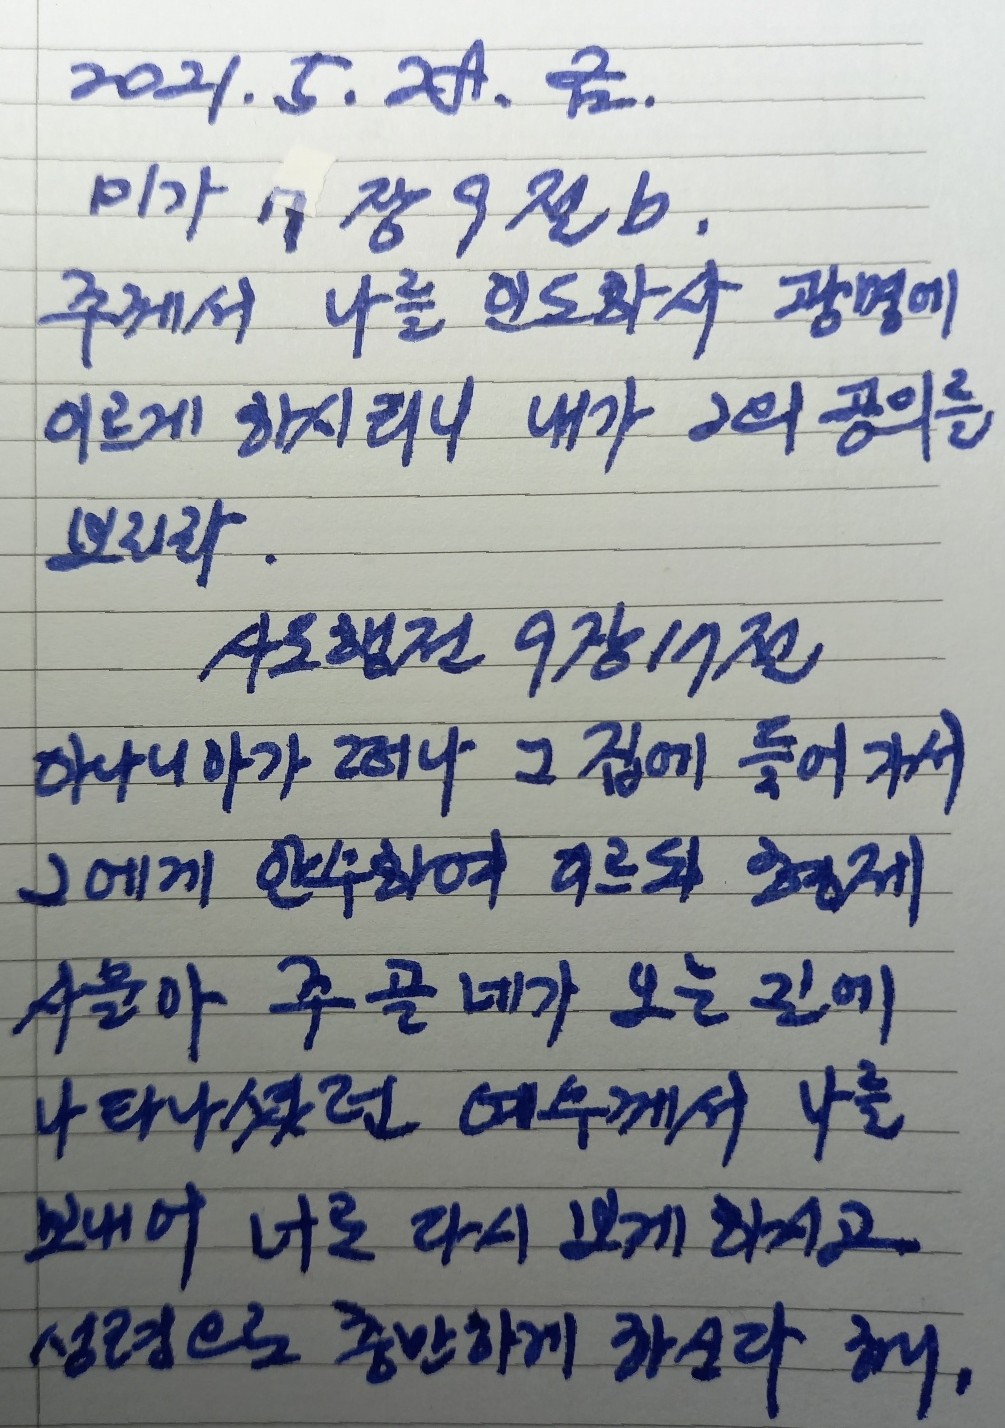 2021. 5. 28. 금.
미가 7장 9절 b.
주께서 나를 인도하사 광명에
이르게 하시리니 내가 그의 공의를
보리라.
사도행전 9장 17절
아나니아가 떠나 그 집에 들어가서
그에게 안수하여 이르되 형제
사울아 주 곧 네가 오는 길에
나타나셨던 예수께서 나를
보내어 너로 다시 보게 하시고
성령으로 충만하게 하신다 하니,